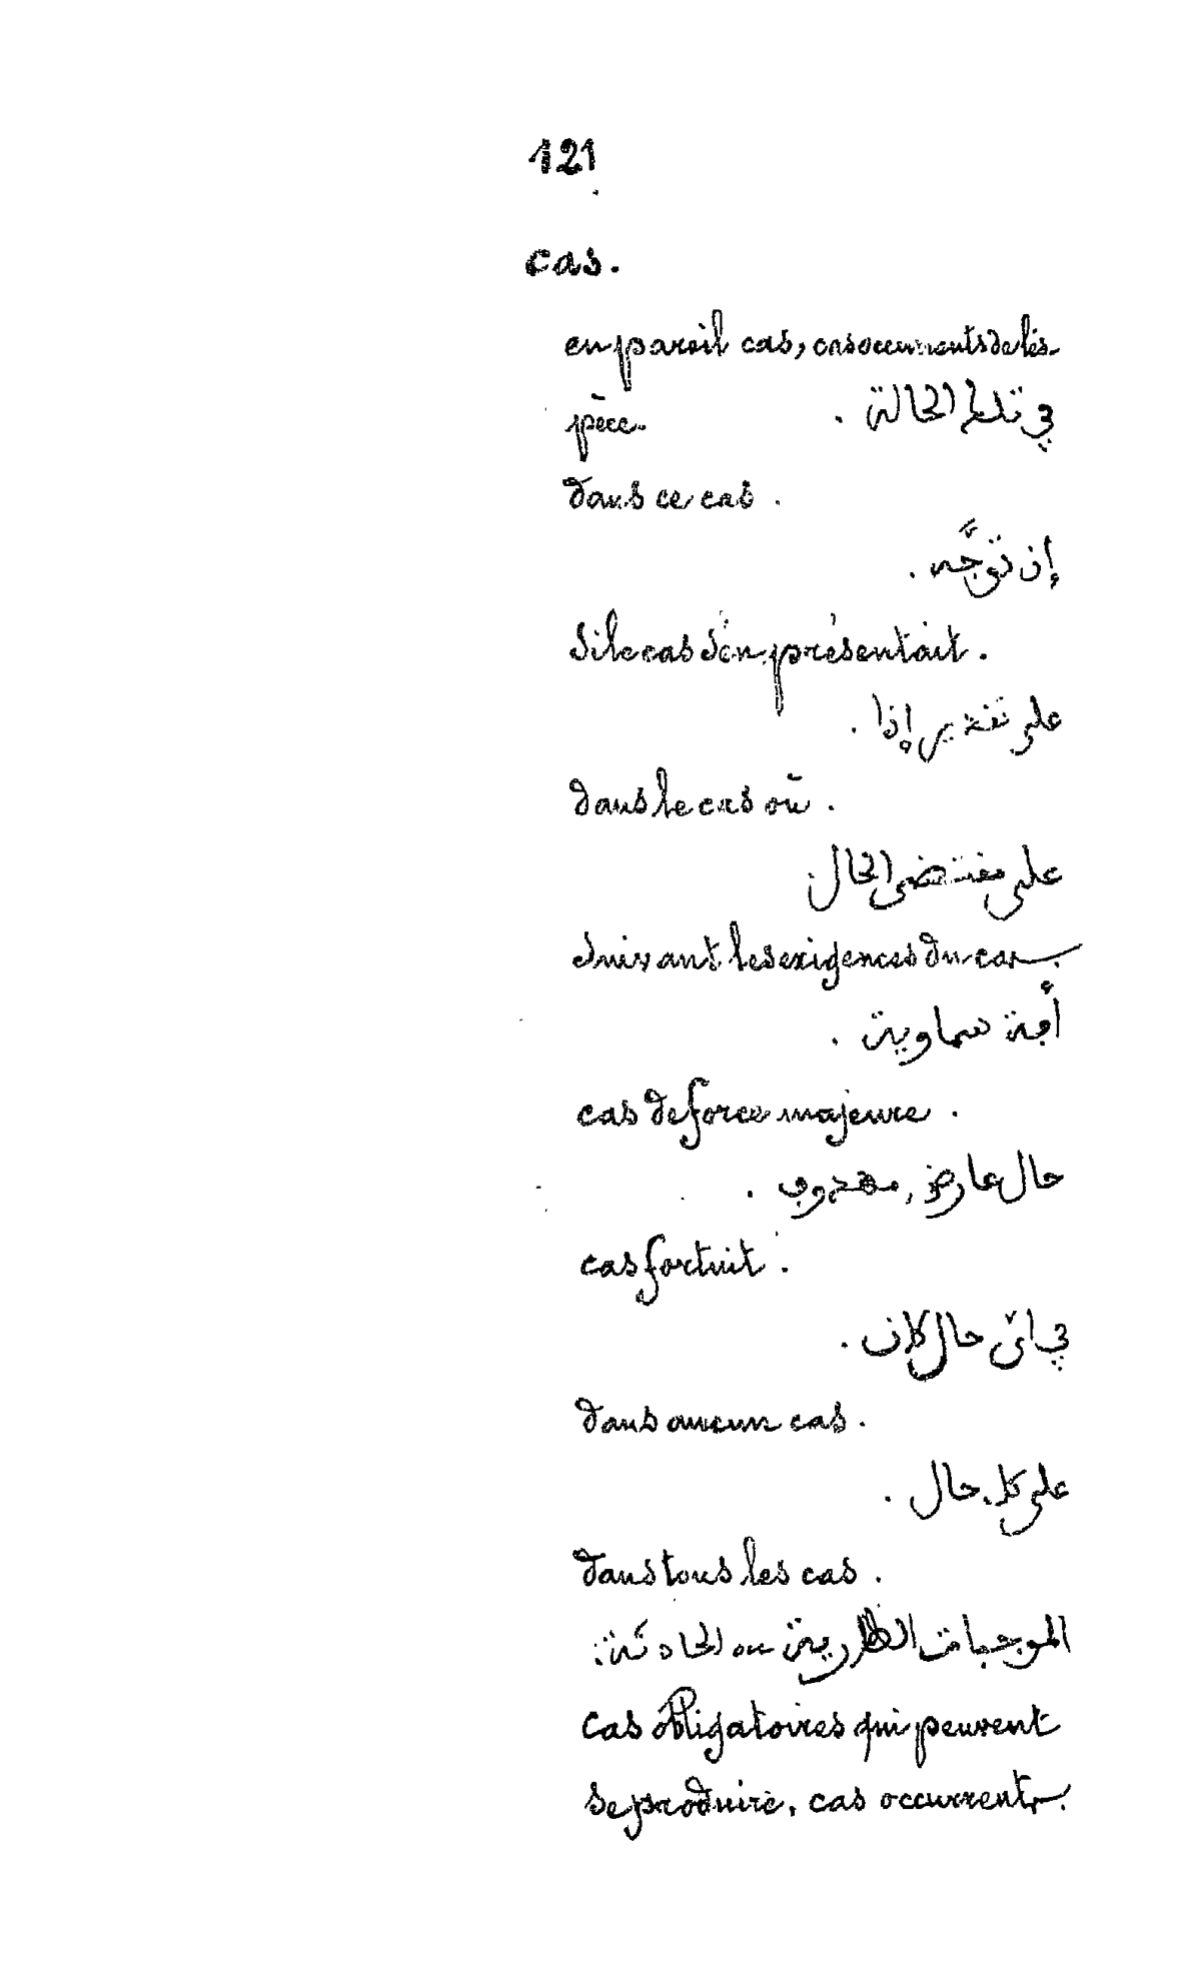 121
cas.
en pareil cas, cas occurrents de l'es-
pèce.
في تلك الحالة .
dans ce cas .
إن توجّه .
si le cas s'en présentait .
على تقدير إذا .
dans le cas où .
على مقتضى الحال
suivant les exigences du cas.
أفة سماوية .
cas de force majeure .
حال عارض,
cas fortuit .
في ايّ حال كان .
dans aucun cas .
على كل حال .
dans tous les cas .
الموجبات الطارية ou الحادثة :
cas obligatoires qui peuvent
se produire, cas occurrents.